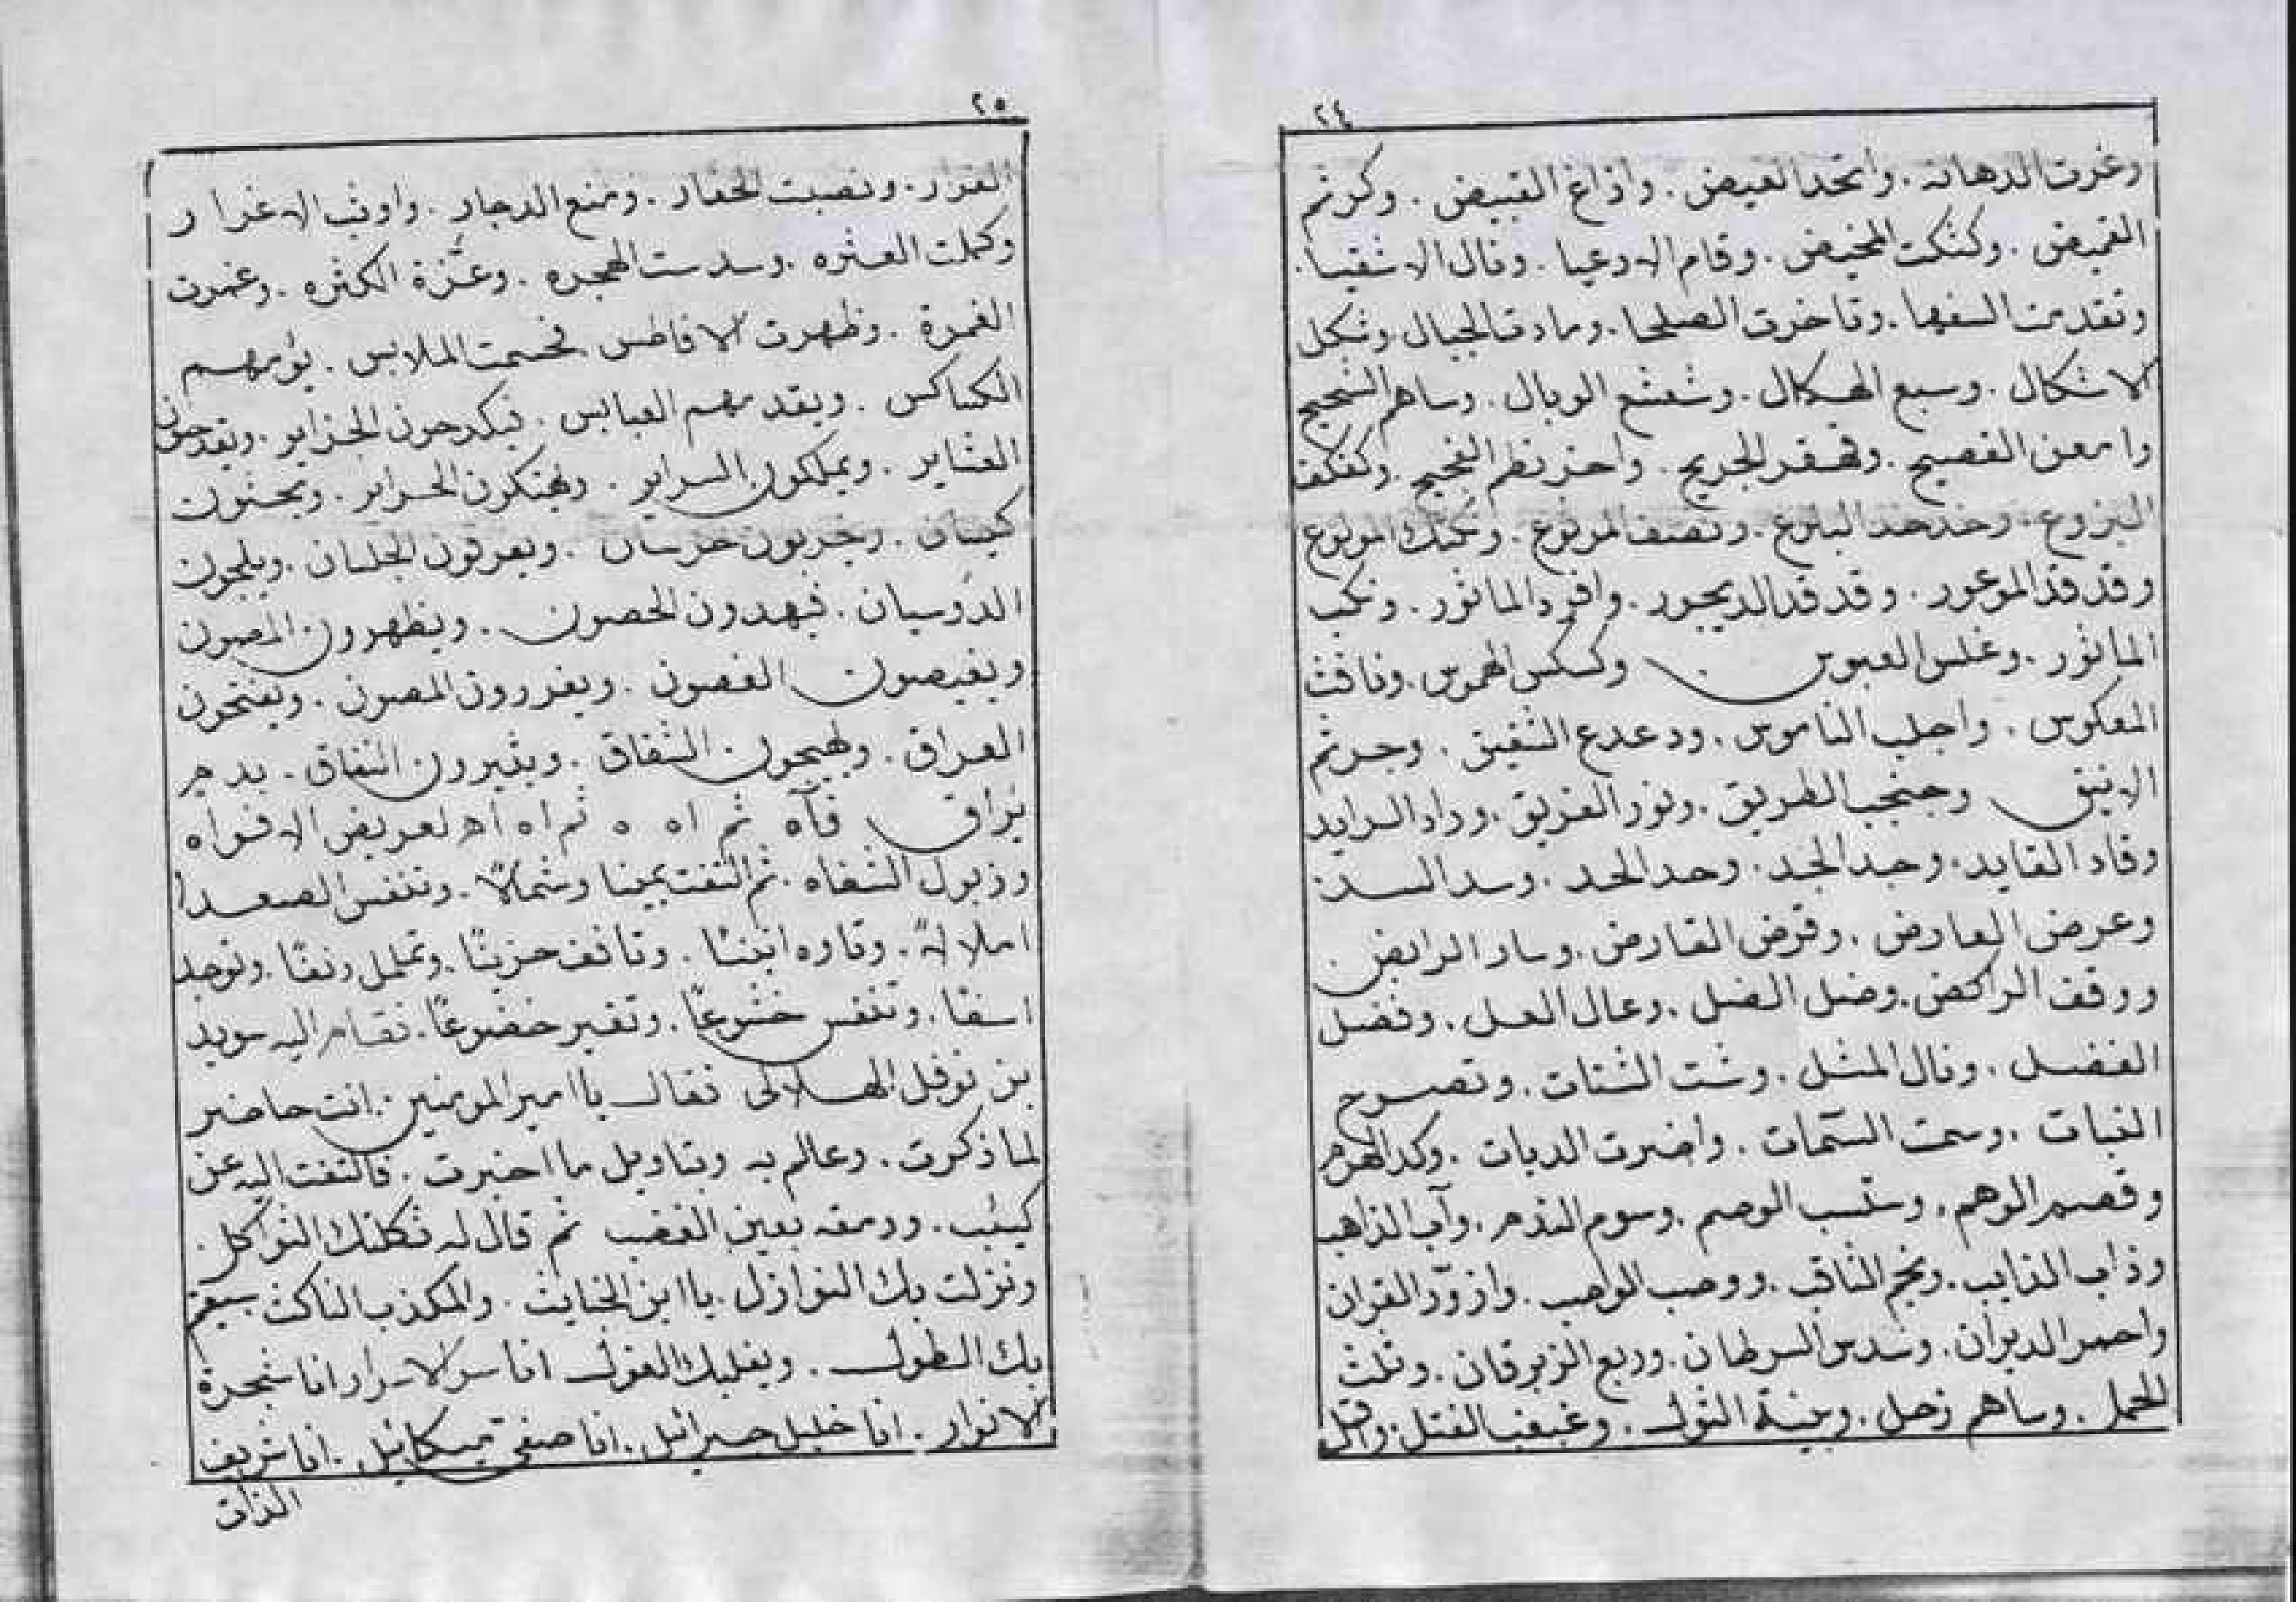 ٢٤
وغرت الدهانه. وانحد العيص. واذاغ القبيض. وكرثم
القميض. وكثكت المحيض. وقام الادعيا. ونال الاشقيا.
وتقدمت السفها. وتاخرت الصلحا. ومادت الجبال. وشكل
الاشكال. وسبع الهكال. وشعشع الوبال. وساهم الشحيح
وامعن الفصيح. وقهقر الجريح. واحزنظم الفحيح. وكفكف
البزوع. وخدخد البلوع. وتصنف المربوع. وتكتك المولوع
وقدقد الموعور. وقدقد الديجور. وافرد الماثور. ونكب
الماثور. وغلس العبوس وكسكس الهموس. ونافث
المعكوس. واجلب الناموس. ودعدع الشفيق. وجرثم
الانيق وجنجب الطريق. ونور الفريق. وراد الرايد
وقاد القايد. وجد الجد. وحد الحد. وسد السد.
وعرض العارض. وقرض القارض. وسار الرابض.
ووقف الراكض. وضل الضل. وعال العل. وفضل
الفضل. ونال المثل. وشت الشتات. وتصوح
النبات. وسمت السمات. واضرت الديات. وكد الهرم
وقصم الوهم. وسبسب الوصم. وسوم الندم. وآب الذاهب
وذاب الذايب. ونجم الثاقب. ووصب الواصب. وازور القران
واحمر الدبران. وسدس السرطان. وربع الزبرقان. وثلث
الحمل. وساهم زحل. وبينة النول. وغبغب الفتل. وافل
٢٥
الفرار. ونصبت الحفار. ومنع الدجار. واوثب الاغرار
وكملت العشره. وسدست الهجره. وعزة الكثره. وغمرت
الغمرة. وظهرت الافاطس فحسمت الملابس. يؤمهم
الكساكس. ويقدمهم العبابس. فيكدحون الجزاير. ويقدحون
العشاير. ويملكون السراير. ويهتكون الحراير. ويحشون
كيسان. ويخربون خرسان. ويعرقون الجلسان. ويلجون
الدوسيان. فيهدون الحصون. ويظهرون المصون
ويغيصون الغصون. ويغررون المصون. ويفتحون
العراق. ويهيجون الشقاق. ويثيرون النفاق. بدم
يراق فآه ثم اه ه ثم اه اه لعريض الافواه
وذبول الشفاه. ثم التفت يمينا وشمالا. وتنفس الصعدا
املالا. وتاوه انينًا. وتافف حزينًا. وتململ رنقًا. وتوجد
اسفًا. وتنفس خشوعًا. وتغير خضوعًا. فقام اليه سويد
بن نوفل الهلالى فقال يا امير المومنين. انت حاضر
لما ذكرت. وعالم به وبتاويل ما اخبرت. فالتفت اليه عن
كيب. ورمقه بعين الغضب ثم قال له ثكلتك الثواكل.
ونزلت بك النوازل. يا ابن الخبايث. والمكذب الناكث سيقز
بك الطول. ويغلبك الغول انا سر الاسرار انا شجرة
الانوار. انا خليل جبرائيل. انا صفى ميكائيل. انا شريف
الذات